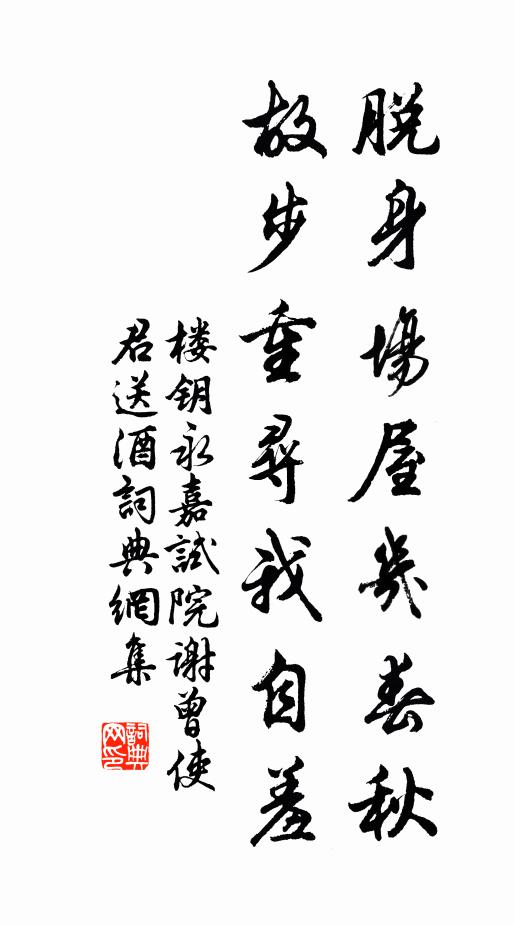 脱身場屋幾春秋
故步重尋我自羞
楼钥永嘉試院谢曾使
君送酒詞典網集
詞典
网印